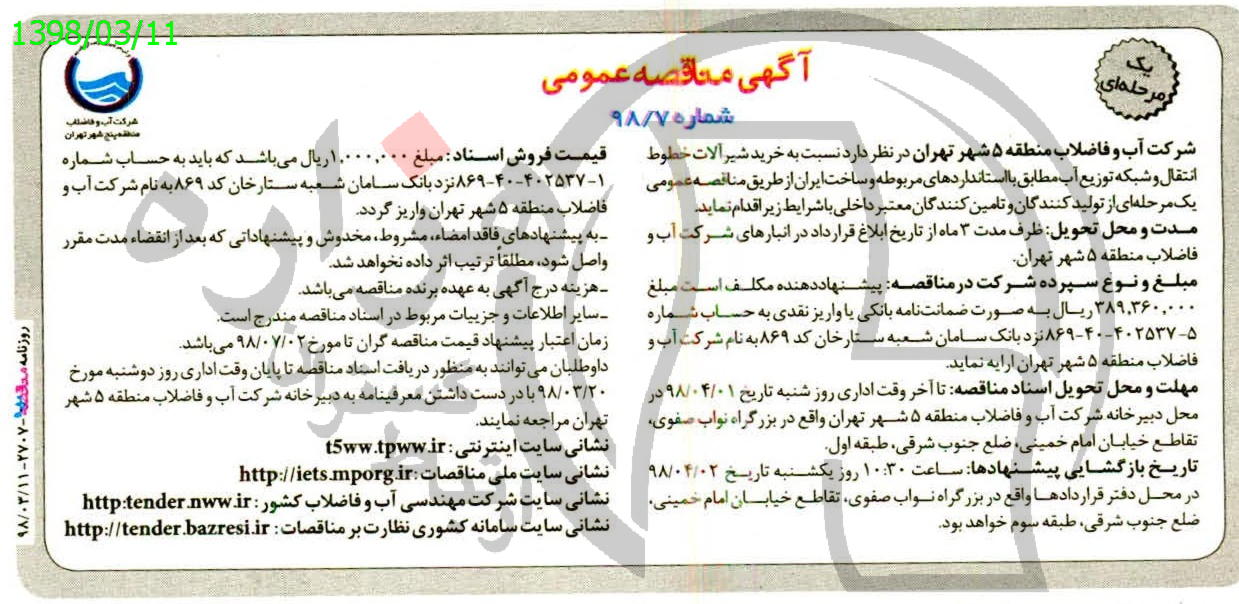 1398/03/11
یک
مرحله‌ای
شرکت آب و فاضلاب
منطقه پنج شهر تهران
آگهی مناقصه عمومی
شماره ۹۸/۷
شرکت آب و فاضلاب منطقه ۵ شهر تهران در نظر دارد نسبت به خرید شیرآلات خطوط
انتقال و شبکه توزیع آب مطابق با استانداردهای مربوطه و ساخت ایران از طریق مناقصه عمومی
یک مرحله‌ای از تولید کنندگان و تامین کنندگان معتبر داخلی با شرایط زیر اقدام نماید.
مدت و محل تحویل: ظرف مدت ۳ ماه از تاریخ ابلاغ قرارداد در انبارهای شرکت آب و
فاضلاب منطقه ۵ شهر تهران.
مبلغ و نوع سپرده شرکت در مناقصه: پیشنهاددهنده مکلف است مبلغ
۳۸۹,۳۶۰,۰۰۰ ریال به صورت ضمانت‌نامه بانکی یا واریز نقدی به حساب شماره
۵-۴۰۲۵۳۷-۴۰-۸۶۹ نزد بانک سامان شعبه ستارخان کد ۸۶۹ به نام شرکت آب و
فاضلاب منطقه ۵ شهر تهران ارایه نماید.
مهلت و محل تحویل اسناد مناقصه: تا آخر وقت اداری روز شنبه تاریخ ۹۸/۰۴/۰۱ در
محل دبیرخانه شرکت آب و فاضلاب منطقه ۵ شهر تهران واقع در بزرگراه نواب صفوی،
تقاطع خیابان امام خمینی، ضلع جنوب شرقی، طبقه اول.
تاریخ بازگشایی پیشنهادها: ساعت ۱۰:۳۰ روز یکشنبه تاریخ ۹۸/۰۴/۰۲
در محل دفتر قراردادها واقع در بزرگراه نواب صفوی، تقاطع خیابان امام خمینی،
ضلع جنوب شرقی، طبقه سوم خواهد بود.
قیمت فروش اسناد: مبلغ ۱,۰۰۰,۰۰۰ ریال می‌باشد که باید به حساب شماره
۱-۴۰۲۵۳۷-۴۰-۸۶۹ نزد بانک سامان شعبه ستارخان کد ۸۶۹ به نام شرکت آب و
فاضلاب منطقه ۵ شهر تهران واریز گردد.
ـ به پیشنهادهای فاقد امضاء، مشروط، مخدوش و پیشنهاداتی که بعد از انقضاء مدت مقرر
واصل شود، مطلقاً ترتیب اثر داده نخواهد شد.
ـ هزینه درج آگهی به عهده برنده مناقصه می‌باشد.
ـ سایر اطلاعات و جزییات مربوط در اسناد مناقصه مندرج است.
زمان اعتبار پیشنهاد قیمت مناقصه گران تا مورخ ۹۸/۰۷/۰۲ می‌باشد.
داوطلبان می توانند به منظور دریافت اسناد مناقصه تا پایان وقت اداری روز دوشنبه مورخ
۹۸/۰۳/۲۰ با در دست داشتن معرفینامه به دبیرخانه شرکت آب و فاضلاب منطقه ۵ شهر
تهران مراجعه نمایند.
نشانی سایت اینترنتی: t5ww.tpww.ir
نشانی سایت ملی مناقصات: http://iets.mporg.ir
نشانی سایت شرکت مهندسی آب و فاضلاب کشور: http:tender.nww.ir
نشانی سایت سامانه کشوری نظارت بر مناقصات: http://tender.bazresi.ir
روزنامه مناقصه ۲۷۰۷-۹۸/۰۳/۱۱
هزاره